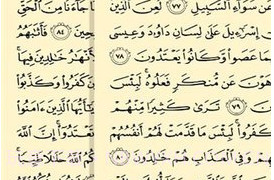 عَن سَوَآءِ ٱلسَّبِيلِ ٧٧ لُعِنَ ٱلَّذِينَ
إِسْرَٰٓءِيلَ عَلَىٰ لِسَانِ دَاوُۥدَ وَعِيسَى
بِمَا عَصَوا۟ وَّكَانُوا۟ يَعْتَدُونَ ٧٨
عَن مُّنكَرٍ فَعَلُوهُ ۚ لَبِئْسَ
٧٩ تَرَىٰ كَثِيرًا مِّنْهُمْ
كَفَرُوا۟ ۚ لَبِئْسَ مَا قَدَّمَتْ لَهُمْ أَنفُسُهُمْ
وَفِى ٱلْعَذَابِ هُمْ خَٰلِدُونَ ٨٠
جَآءَنَا مِنَ ٱلْحَقِّ
٨٤ فَأَثَٰبَهُمُ
ٱلْأَنْهَٰرُ خَٰلِدِينَ فِيهَا ۚ
كَفَرُوا۟ وَكَذَّبُوا۟
يَٰٓأَيُّهَا ٱلَّذِينَ ءَامَنُوا۟
تَعْتَدُوٓا۟ ۚ إِنَّ ٱللَّهَ
ٱللَّهُ حَلَٰلًا طَيِّبًا ۚ